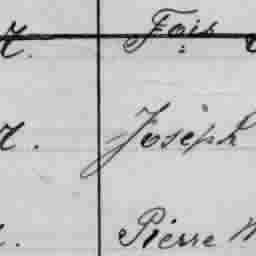 r. Fois
r. Joseph
Pierre